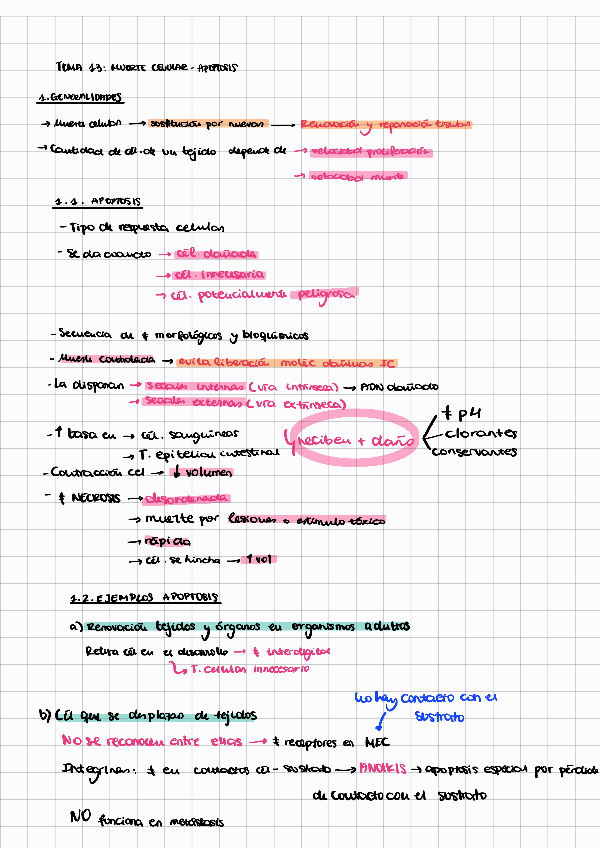 TEMA 13: MUERTE CELULAR - APOPTOSIS
1. GENERALIDADES
→ Muerte celular → sustitución por nuevas → Renovación y reparación tisular
→ Cantidad de cél. de un tejido depende de → velocidad proliferación
→ velocidad muerte
1.1. APOPTOSIS
- Tipo de respuesta celular
- Se da cuando → cél. dañada
→ cél. innecesaria
→ cél. potencialmente peligrosa
- Secuencia de ≠ morfológicos y bioquímicos
- Muerte controlada → evita liberación moléc dañinas IC
- La disparan → señales internas (vía intrínseca) → ADN dañado
→ señales externas (vía extrínseca)
- ↑ tasa en → cél. sanguíneas
→ T. epitelial intestinal
reciben + daño
≠ pH
clorantes
conservantes
- Contracción cel → ↓ volumen
- ≠ NECROSIS → desordenada
→ muerte por lesiones o estímulo tóxico
→ rápida
→ cél. se hincha → ↑ vol
1.2. EJEMPLOS APOPTOSIS
a) Renovación tejidos y órganos en organismos adultos
Retira cél en el desarrollo → ≠ interdigital
↳ T. celular innecesario
b) Cél que se desplazan de tejidos
no hay contacto con el
sustrato
NO se reconocen entre ellas → ≠ receptores en MEC
Integrinas: ≠ en contactos cél - sustrato → ANOIKIS → apoptosis especial por pérdida
de contacto con el sustrato
NO funciona en metástasis